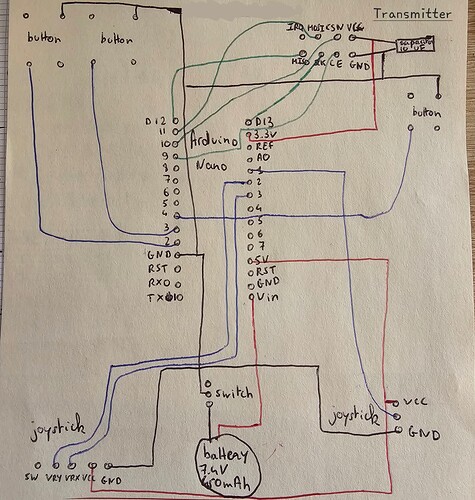 Transmitter
IRQ MOSI CSN VCC
button
button
MISO SCK CE GND
button
D12
D13
11
3.3V
10
Arduino
REF
9
Nano
A0
8
1
7
2
6
3
5
4
4
5
3
6
2
7
GND
5V
RST
RST
RX0
GND
TX
Vin
switch
joystick
VCC
joystick
GND
battery
7.4V
SW VRY VRX VCC GND